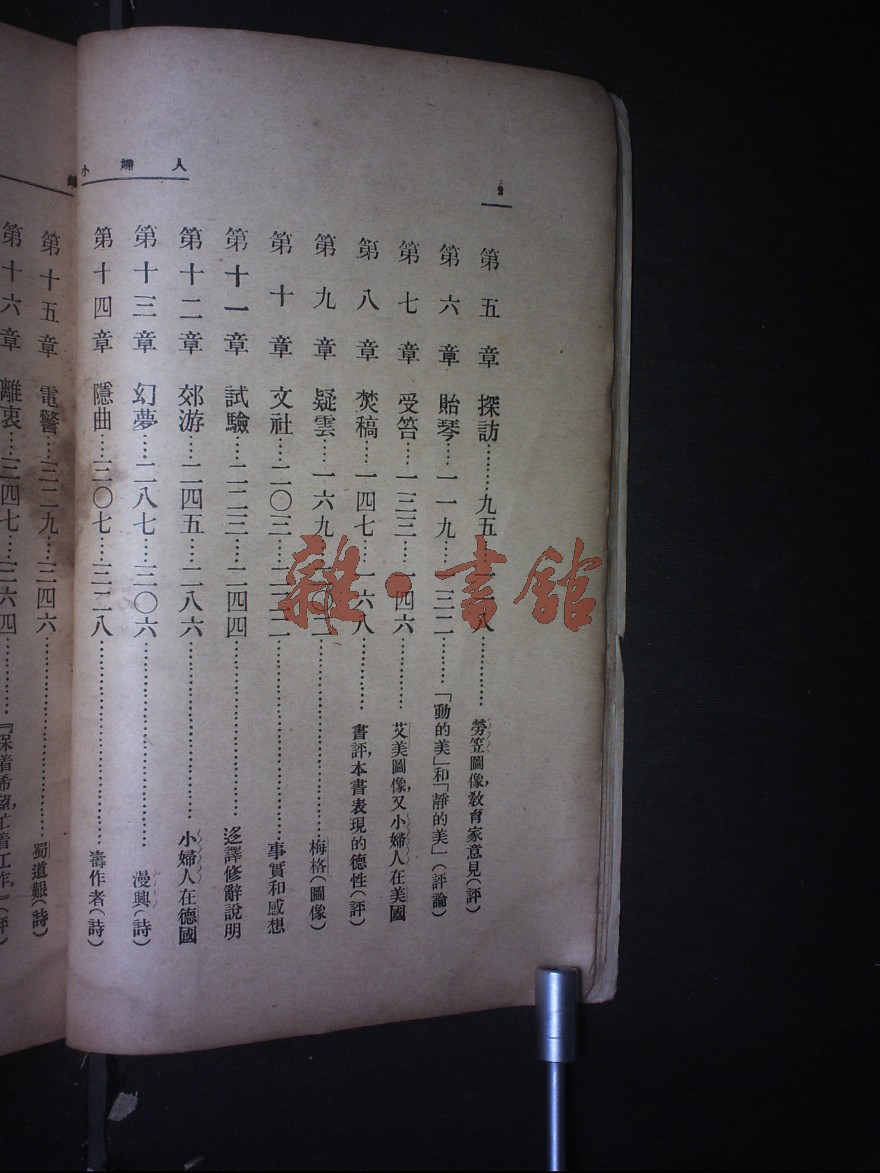 2
小婦人
第五章 探訪……九五……一一八……勞笠圖像,教育家意見(評)
第六章 貽琴……一一九……一三二……「動的美」和「靜的美」(評論)
第七章 受笞……一三三……一四六……艾美圖像,又小婦人在美國
第八章 焚稿……一四七……一六八……書評,本書表現的德性(評)
第九章 疑雲……一六九……二〇二……梅格(圖像)
第十章 文社……二〇三……二二二……事實和感想
第十一章 試驗……二二三……二四四……迻譯修辭說明
第十二章 郊游……二四五……二八六……小婦人在德國
第十三章 幻夢……二八七……三〇六……漫興(詩)
第十四章 隱曲……三〇七……三二八……壽作者(詩)
第十五章 電警……三二九……三四六……蜀道艱(詩)
第十六章 離衷……三四七……三六四……『保着希望,忙着工作。』(評)
雜·書館